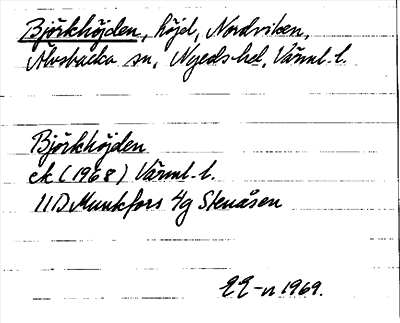 Björkhöjden, höjd, Nordviken,
Älvsbacka sn, Nyeds hd, Värml. l.
Björkhöjden
ek (1968) Värml. l.
11D Munkfors 4g Stenåsen
EE-n 1969.